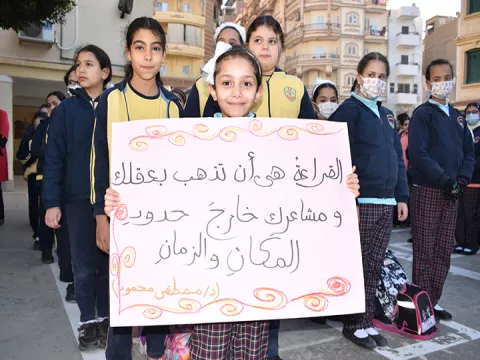 القراءة هى أن تذهب بعقلك
و مشاعرك خارجَ حدودِ
المكانِ والزمانِ
(د/مصطفى محمود)